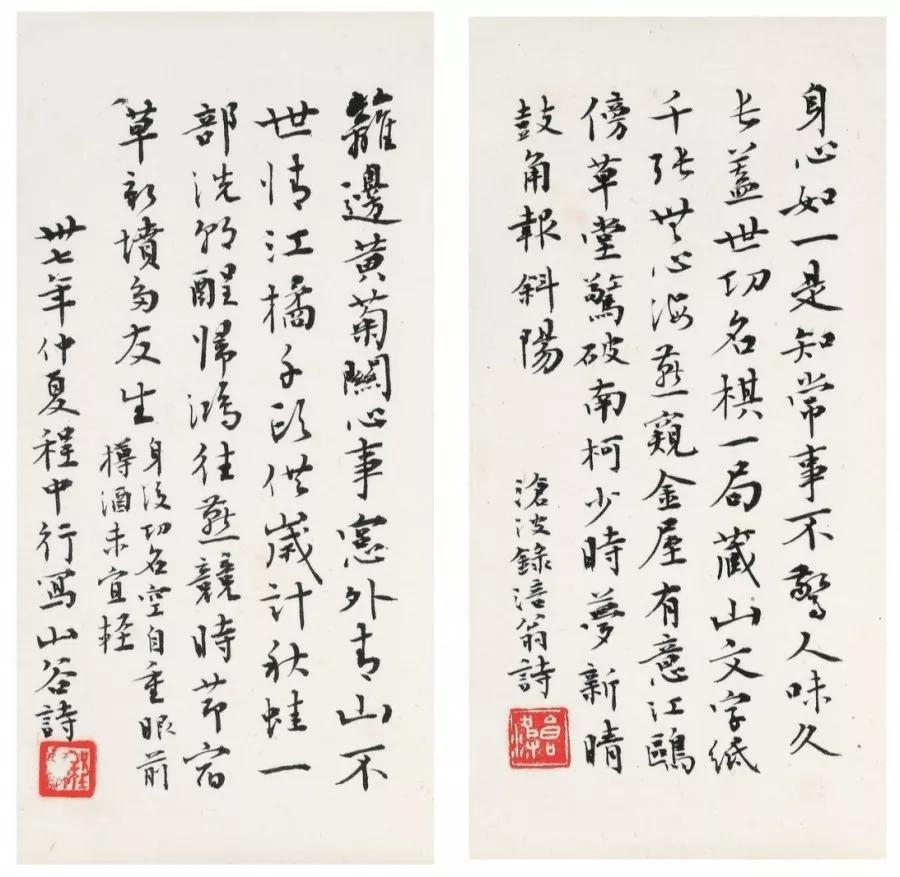 身心如一是知常事不驚人味久
長蓋世功名棋一局藏山文字紙
千張無心海燕窺金屋有意江鷗
傍草堂驚破南柯少時夢新晴
鼓角報斜陽
滄波錄涪翁詩
籬邊黃菊關心事窻外青山不
世情江橘千頭供歲計秋蛙一
部洗朝酲歸鴻往燕競時節宿
草新墳多友生
身後功名空自重眼前
樽酒未宜輕
卅七年仲夏程中行寫山谷詩